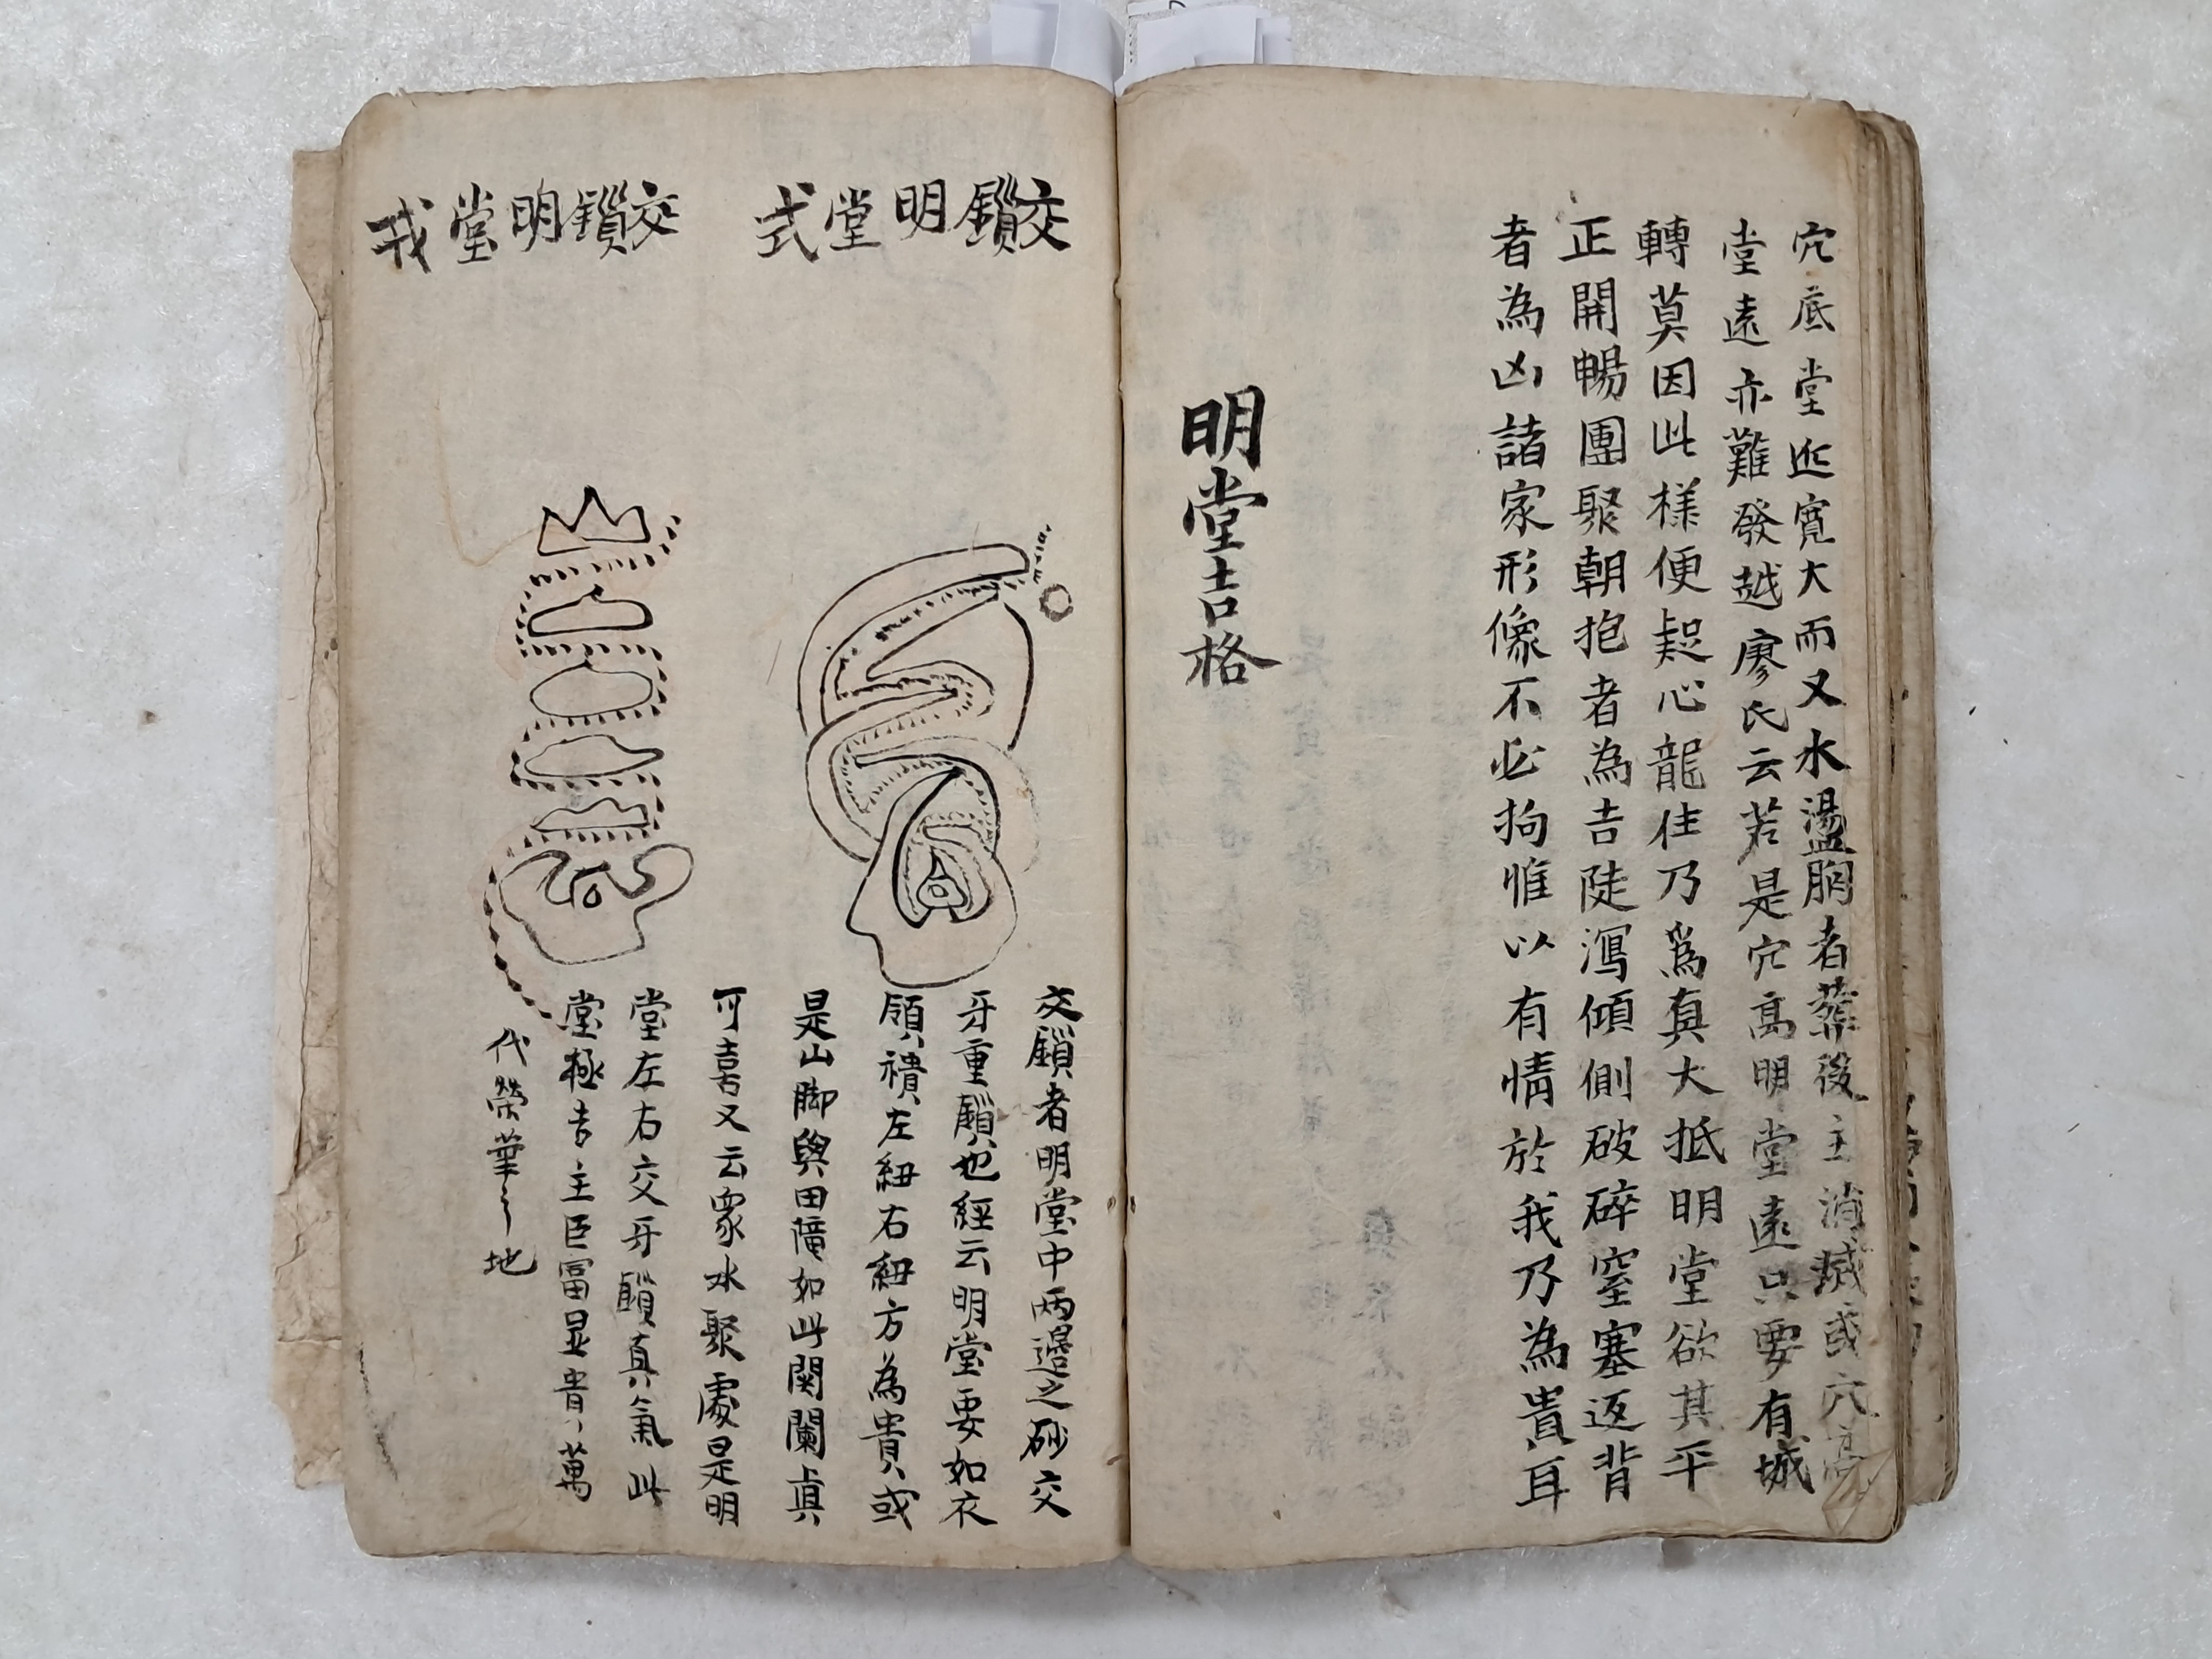 穴底堂近寬大而又水盪胸者葬後主消滅或穴高
堂遠亦難發越廖氏云若是穴高明堂遠只要有城
轉莫因此樣便疑心龍住乃為真大抵明堂欲其平
正開暢團聚朝抱者為吉陡瀉傾側破碎窒塞返背
者為凶諸家形像不必拘惟以有情於我乃為貴耳
明堂吉格
交鎖明堂式
交鎖明堂式
交鎖者明堂中兩邊之砂交
牙重鎖也經云明堂要如衣
領襀左紐右紐方為貴或
是山脚與田隴如此関闌真
可喜又云衆水聚處是明
堂左右交牙鎖真氣此
堂極吉主臣富显貴萬
代榮華之地